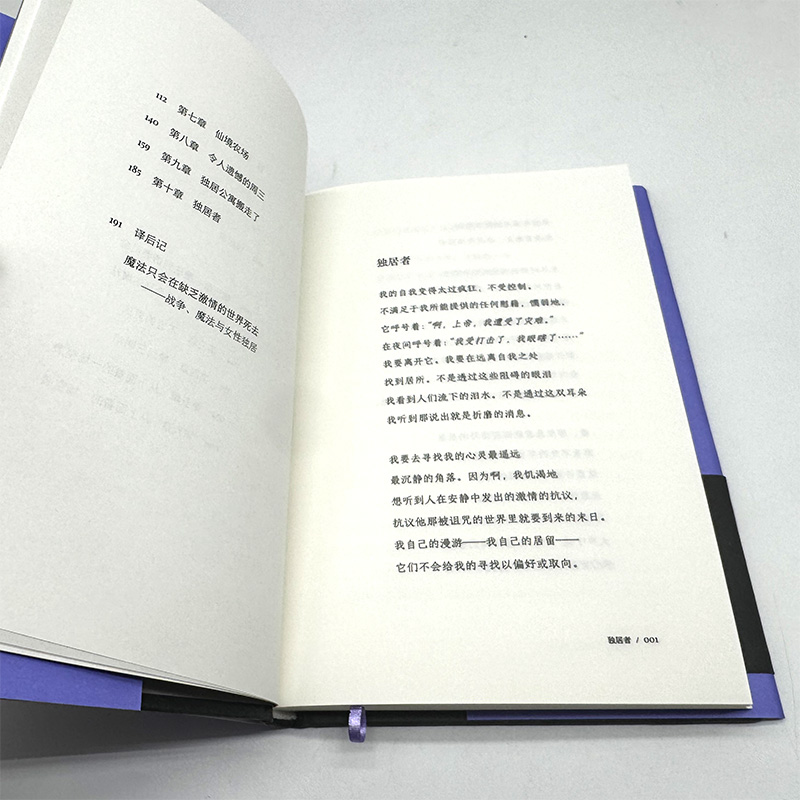 112 第七章 仙境农场
140 第八章 令人遗憾的周三
159 第九章 独居公寓搬走了
185 第十章 独居者
191 译后记
魔法只会在缺乏激情的世界死去
——战争、魔法与女性独居
独居者
我的自我变得太过疯狂，不受控制。
不满足于我所能提供的任何慰藉，懦弱地，
它呼号着：“啊，上帝，我遭受了灾难。”
在夜间呼号着：“我受打击了，我眼瞎了……”
我要离开它。我要在远离自我之处
找到居所。不是透过这些阻碍的眼泪
我看到人们流下的泪水。不是透过这双耳朵
我听到那说出就是折磨的消息。
我要去寻找我的心灵最遥远
最沉静的角落。因为啊，我饥渴地
想听到人在安静中发出的激情的抗议，
抗议他那被诅咒的世界里就要到来的末日。
我自己的漫游——我自己的居留——
它们不会给我的寻找以偏好或取向。
独居者 / 001